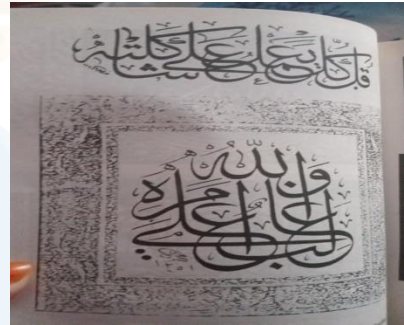 قُلْ كُلٌّ يَعْمَلُ عَلَىٰ شَاكِلَتِهِ
وَاللَّهُ غَالِبٌ عَلَىٰ أَمْرِهِ